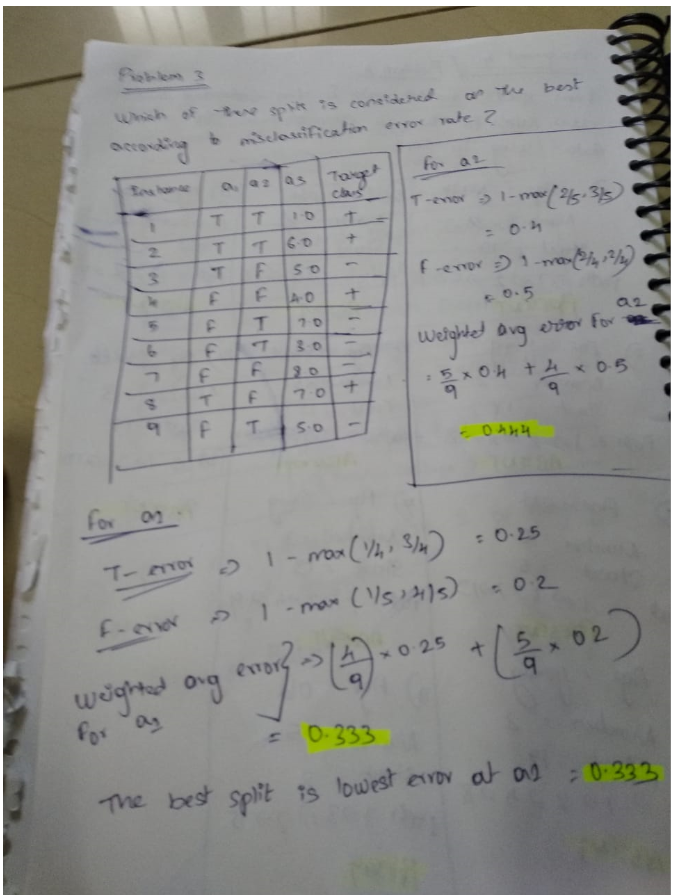 Problem 3
Which of these split is considered as the best
according to misclassification error rate ?
Instance a1 a2 a3 Target class
1 T T 1.0 +
2 T T 6.0 +
3 T F 5.0 -
4 F F 4.0 +
5 F T 7.0 -
6 F T 3.0 -
7 F F 8.0 -
8 T F 7.0 +
9 F T 5.0 -
For a2
T-error ⇒ 1-max(2/5, 3/5)
= 0.4
F-error ⇒ 1-max(2/4, 2/4)
= 0.5
Weighted avg error for a2
= 5/9 × 0.4 + 4/9 × 0.5
= 0.444
For a1
T-error ⇒ 1 - max(1/4, 3/4) = 0.25
F-error ⇒ 1 - max(1/5, 4/5) = 0.2
Weighted avg error } ⇒ (4/9) × 0.25 + (5/9 × 0.2)
For a1
= 0.333
The best split is lowest error at a1 = 0.333